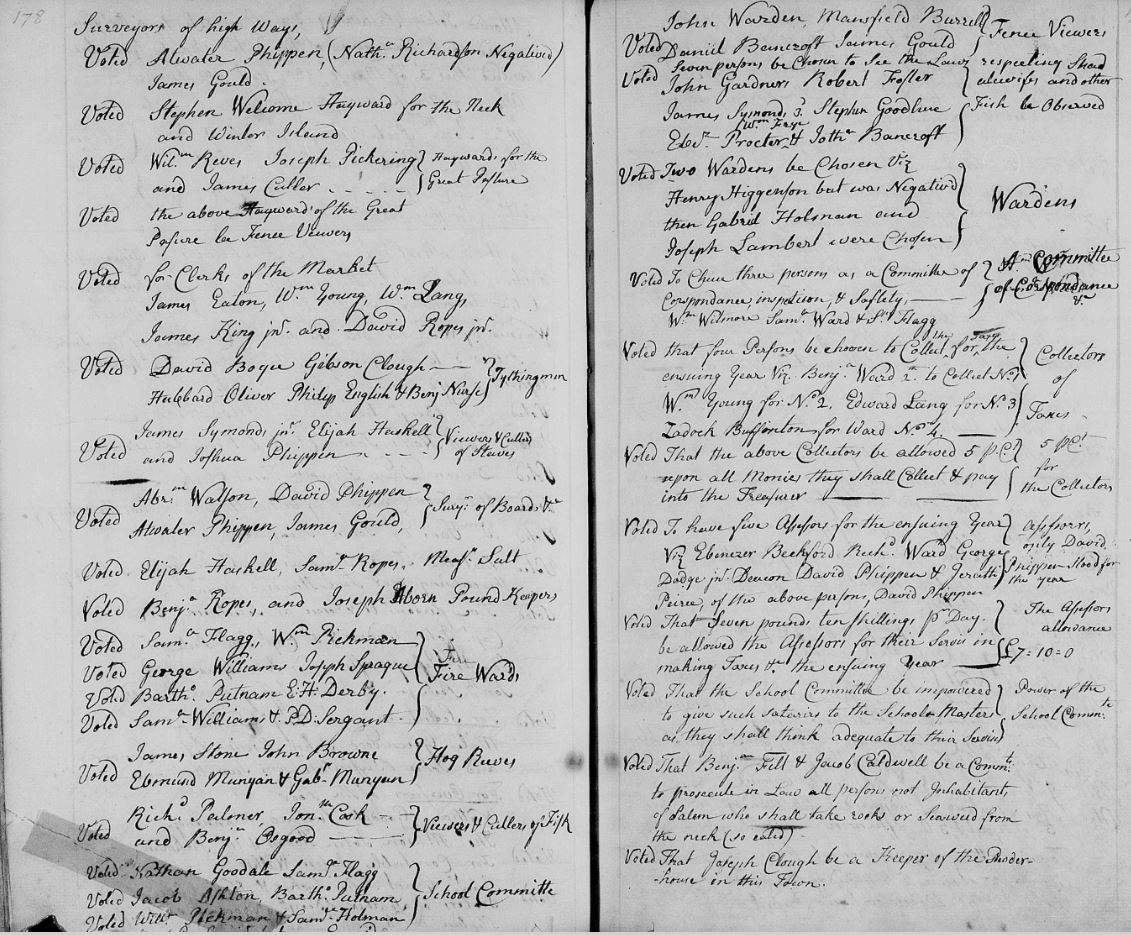 178
Surveyors of high Ways,
Voted Atwater Phippen, (Nathl. Richardson Negatived)
James Gould.
Voted Stephen Welcome Hayward for the Neck
and Winter Island
Voted Wilm. Reves Joseph Pickering } Haywards for the
and James Culler - - - - } Great Pasture
Voted the above Hayward's of the Great
Pasure be Fence Viewers
Voted for Clerks of the Market
James Eaton, Wm. Young, Wm. Lang,
James King jnr. and David Ropes jnr.
Voted David Boyce Gibson Clough - -
Hubbard Oliver Philip English & Benj Nurse } Tythingmen
James Symonds jnr. Elijah Haskell } Viewers & Cullers
Voted and Joshua Phippen - - - - } of Staves
Abrm. Watson, David Phippen
Voted Atwater Phippen, James Gould, } Survrs. of Boards &c
Voted Elijah Haskell, Saml. Ropes, Measrs. Salt
Voted Benja. Ropes, and Joseph Aborn Pound Keepers
Voted Saml. Flagg, Wm. Pickman
Voted George Williams Joseph Sprague } Fire
Voted Barthw. Putnam E. H. Derby. } Fire Wards
Voted Saml. Williams & P. D. Sergant.
James Stone John Browne
Voted Edmund Munyan & Gabl. Munyan } Hog Reeves
Richd. Palmer, Jonn. Cook
Voted and Benjn. Osgood } Viewers & Cullers of Fish
Voted Nathan Goodale Saml. Flagg
Voted Jacob Ashton, Barthw. Putnam, } School Committe
Voted Willm. Pickman & Saml. Holman
John Warden, Mansfield Burrell
Voted Daniel Bancroft James Gould } Fence Viewers
Seven persons be Chosen to See the Laws respecting Shad
Voted John Gardner Robert Foster alewifes and other
James Symonds 3d. Stephen Goodhue } Fish be Observed
Wm. Frye
Edwd. Procter & Jotha. Bancroft
Voted Two Wardens be Chosen Viz
Henry Higgenson but was Negativd
then Gabriel Holman and } Wardens
Joseph Lambert were Chosen
Voted To Chuse three persons as a Committee of } Committee
Corspondance, inspection, & Saftety, } of Corspondance &c
Wm. Wetmore Saml. Ward & Sl. Flagg
Voted that four Persons be choose to Collect the Taxes for the } Collectors
ensuing Year Viz Benjn. Ward 2d. to Collect No. 1 } of
Wm. Young for No. 2, Edward Lang for No. 3 } Taxes
Zadock Buffenton for Ward No. 4
Voted That the above Collectors be allowed 5 p.Ct. } 5 p.Ct
upon all Monies they shall Collect & pay } for
into the Treasurer the Collectors
Voted To have five Assessors for the ensuing Year } assessors,
Viz Ebenezer Beckford Richd. Ward George } only David
Dodge jnr. Deacon David Phippen & Jerath } Phippen Stood for
Peirce, of the above persons, David Phippen the year
Voted That Seven pounds ten shillings pr Day. The Assessors
be allowed the Assessors for their Servis in } allowance
making Taxes &c. the ensuing Year £7=10=0
Voted That the School Committee be impowered } Power of the
to give such salaries to the School Masters } School Commte.
as they shall think adequate to their Servises
Voted That Benjn. Felt & Jacob Caldwell be a Commte.
to prosecute in Law all persons not Inhabitants,
of Salem who shall take rocks or Seaweed from
the neck (so called)
Voted That Joseph Clough be a Keeper of the Powder-
-house in this Town.